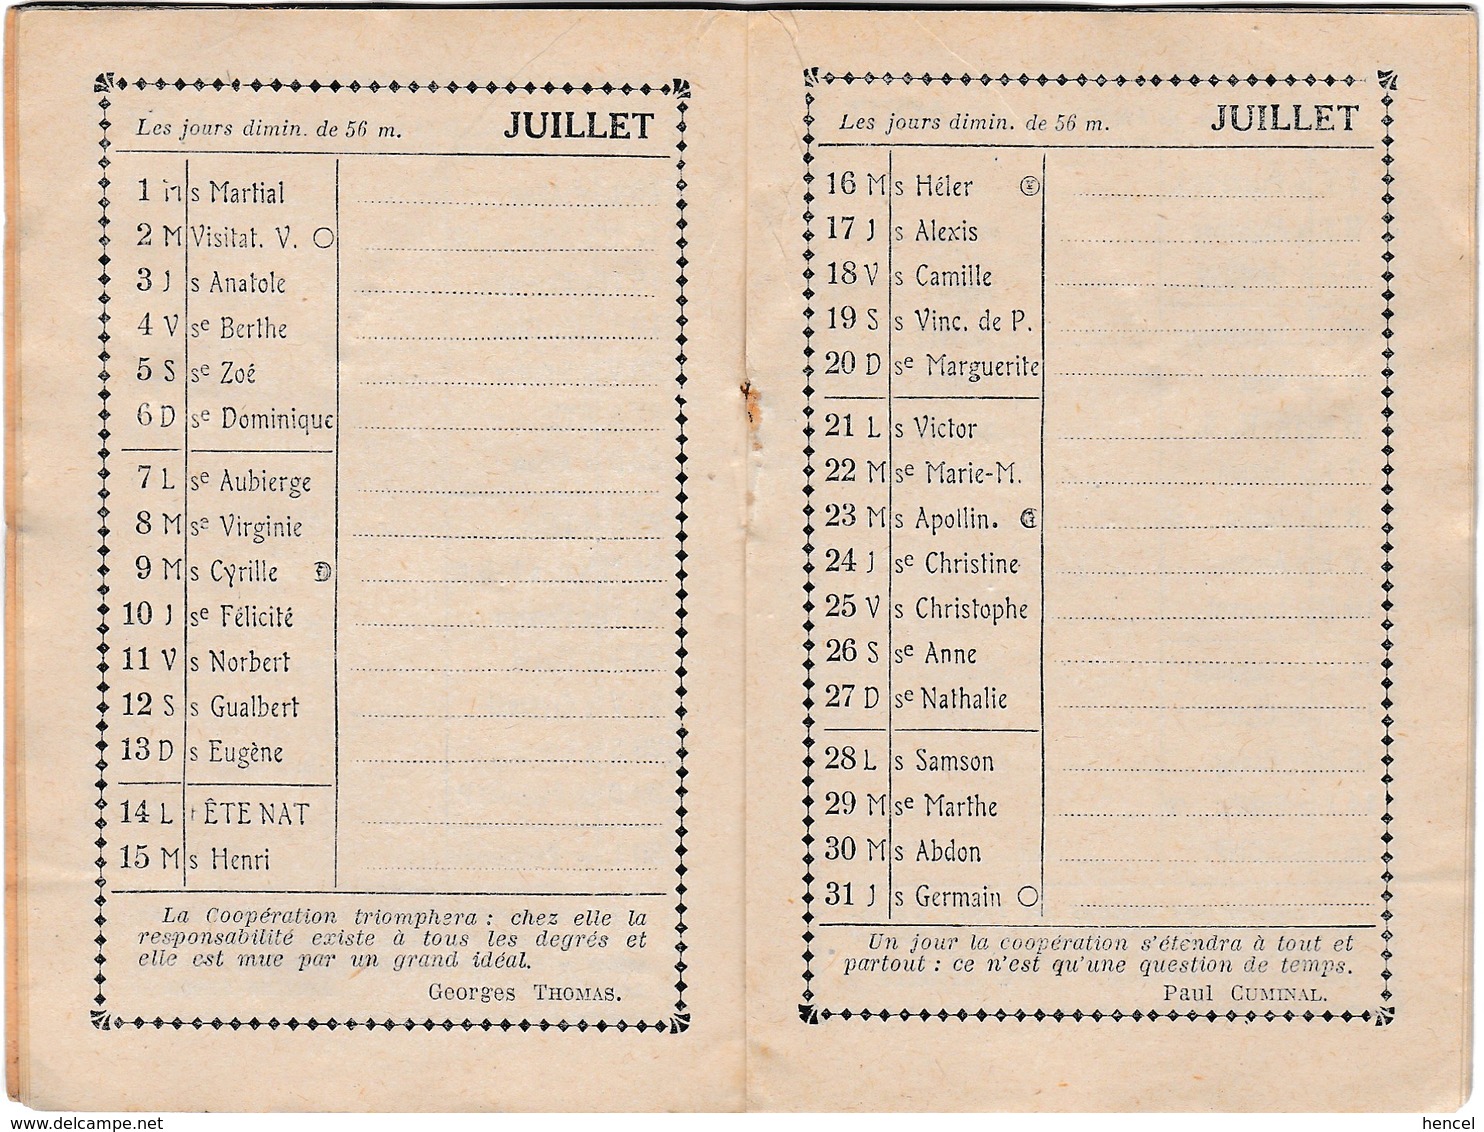 Les jours dimin. de 56 m. JUILLET
1 M s Martial
2 M Visitat. V.
3 J s Anatole
4 V sᵉ Berthe
5 S sᵉ Zoé
6 D sᵉ Dominique
7 L sᵉ Aubierge
8 M sᵉ Virginie
9 M s Cyrille
10 J sᵉ Félicité
11 V s Norbert
12 S s Gualbert
13 D s Eugène
14 L FÊTE NAT
15 M s Henri
La Coopération triomphera : chez elle la
responsabilité existe à tous les degrés et
elle est mue par un grand idéal.
Georges THOMAS.
Les jours dimin. de 56 m. JUILLET
16 M s Héler
17 J s Alexis
18 V s Camille
19 S s Vinc. de P.
20 D sᵉ Marguerite
21 L s Victor
22 M sᵉ Marie-M.
23 M s Apollin.
24 J sᵉ Christine
25 V s Christophe
26 S sᵉ Anne
27 D sᵉ Nathalie
28 L s Samson
29 M sᵉ Marthe
30 M s Abdon
31 J s Germain
Un jour la coopération s'étendra à tout et
partout : ce n'est qu'une question de temps.
Paul CUMINAL.
delcampe.net
hencel